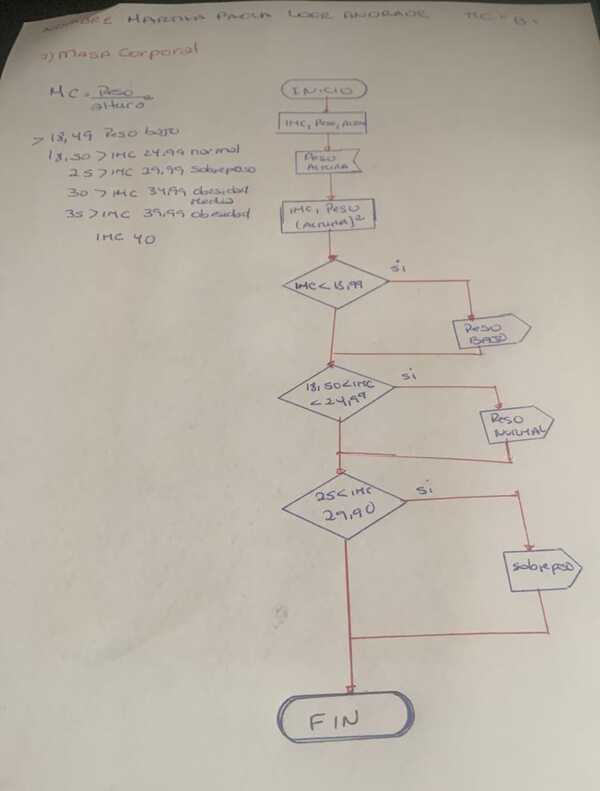 NOMBRE MARTHA PAOLA LOOR ANDRADE
a) Masa Corporal
MC = Peso
altura 2
> 18,49 Peso bajo
18,50 > IMC 24.99 normal
25 > IMC 29,99 Sobrepeso
30 > IMC 34,99 obesidad
Media
35 > IMC 39,99 obesidad
IMC 40
INICIO
IMC, Peso, Altura
PESO
ALTURA
IMC, PESO
(ALTURA)²
IMC < 18,99
si
PESO
BAJO
18,50 < IMC
< 24,99
si
PESO
NORMAL
25 < IMC
29,90
si
Sobrepso
FIN